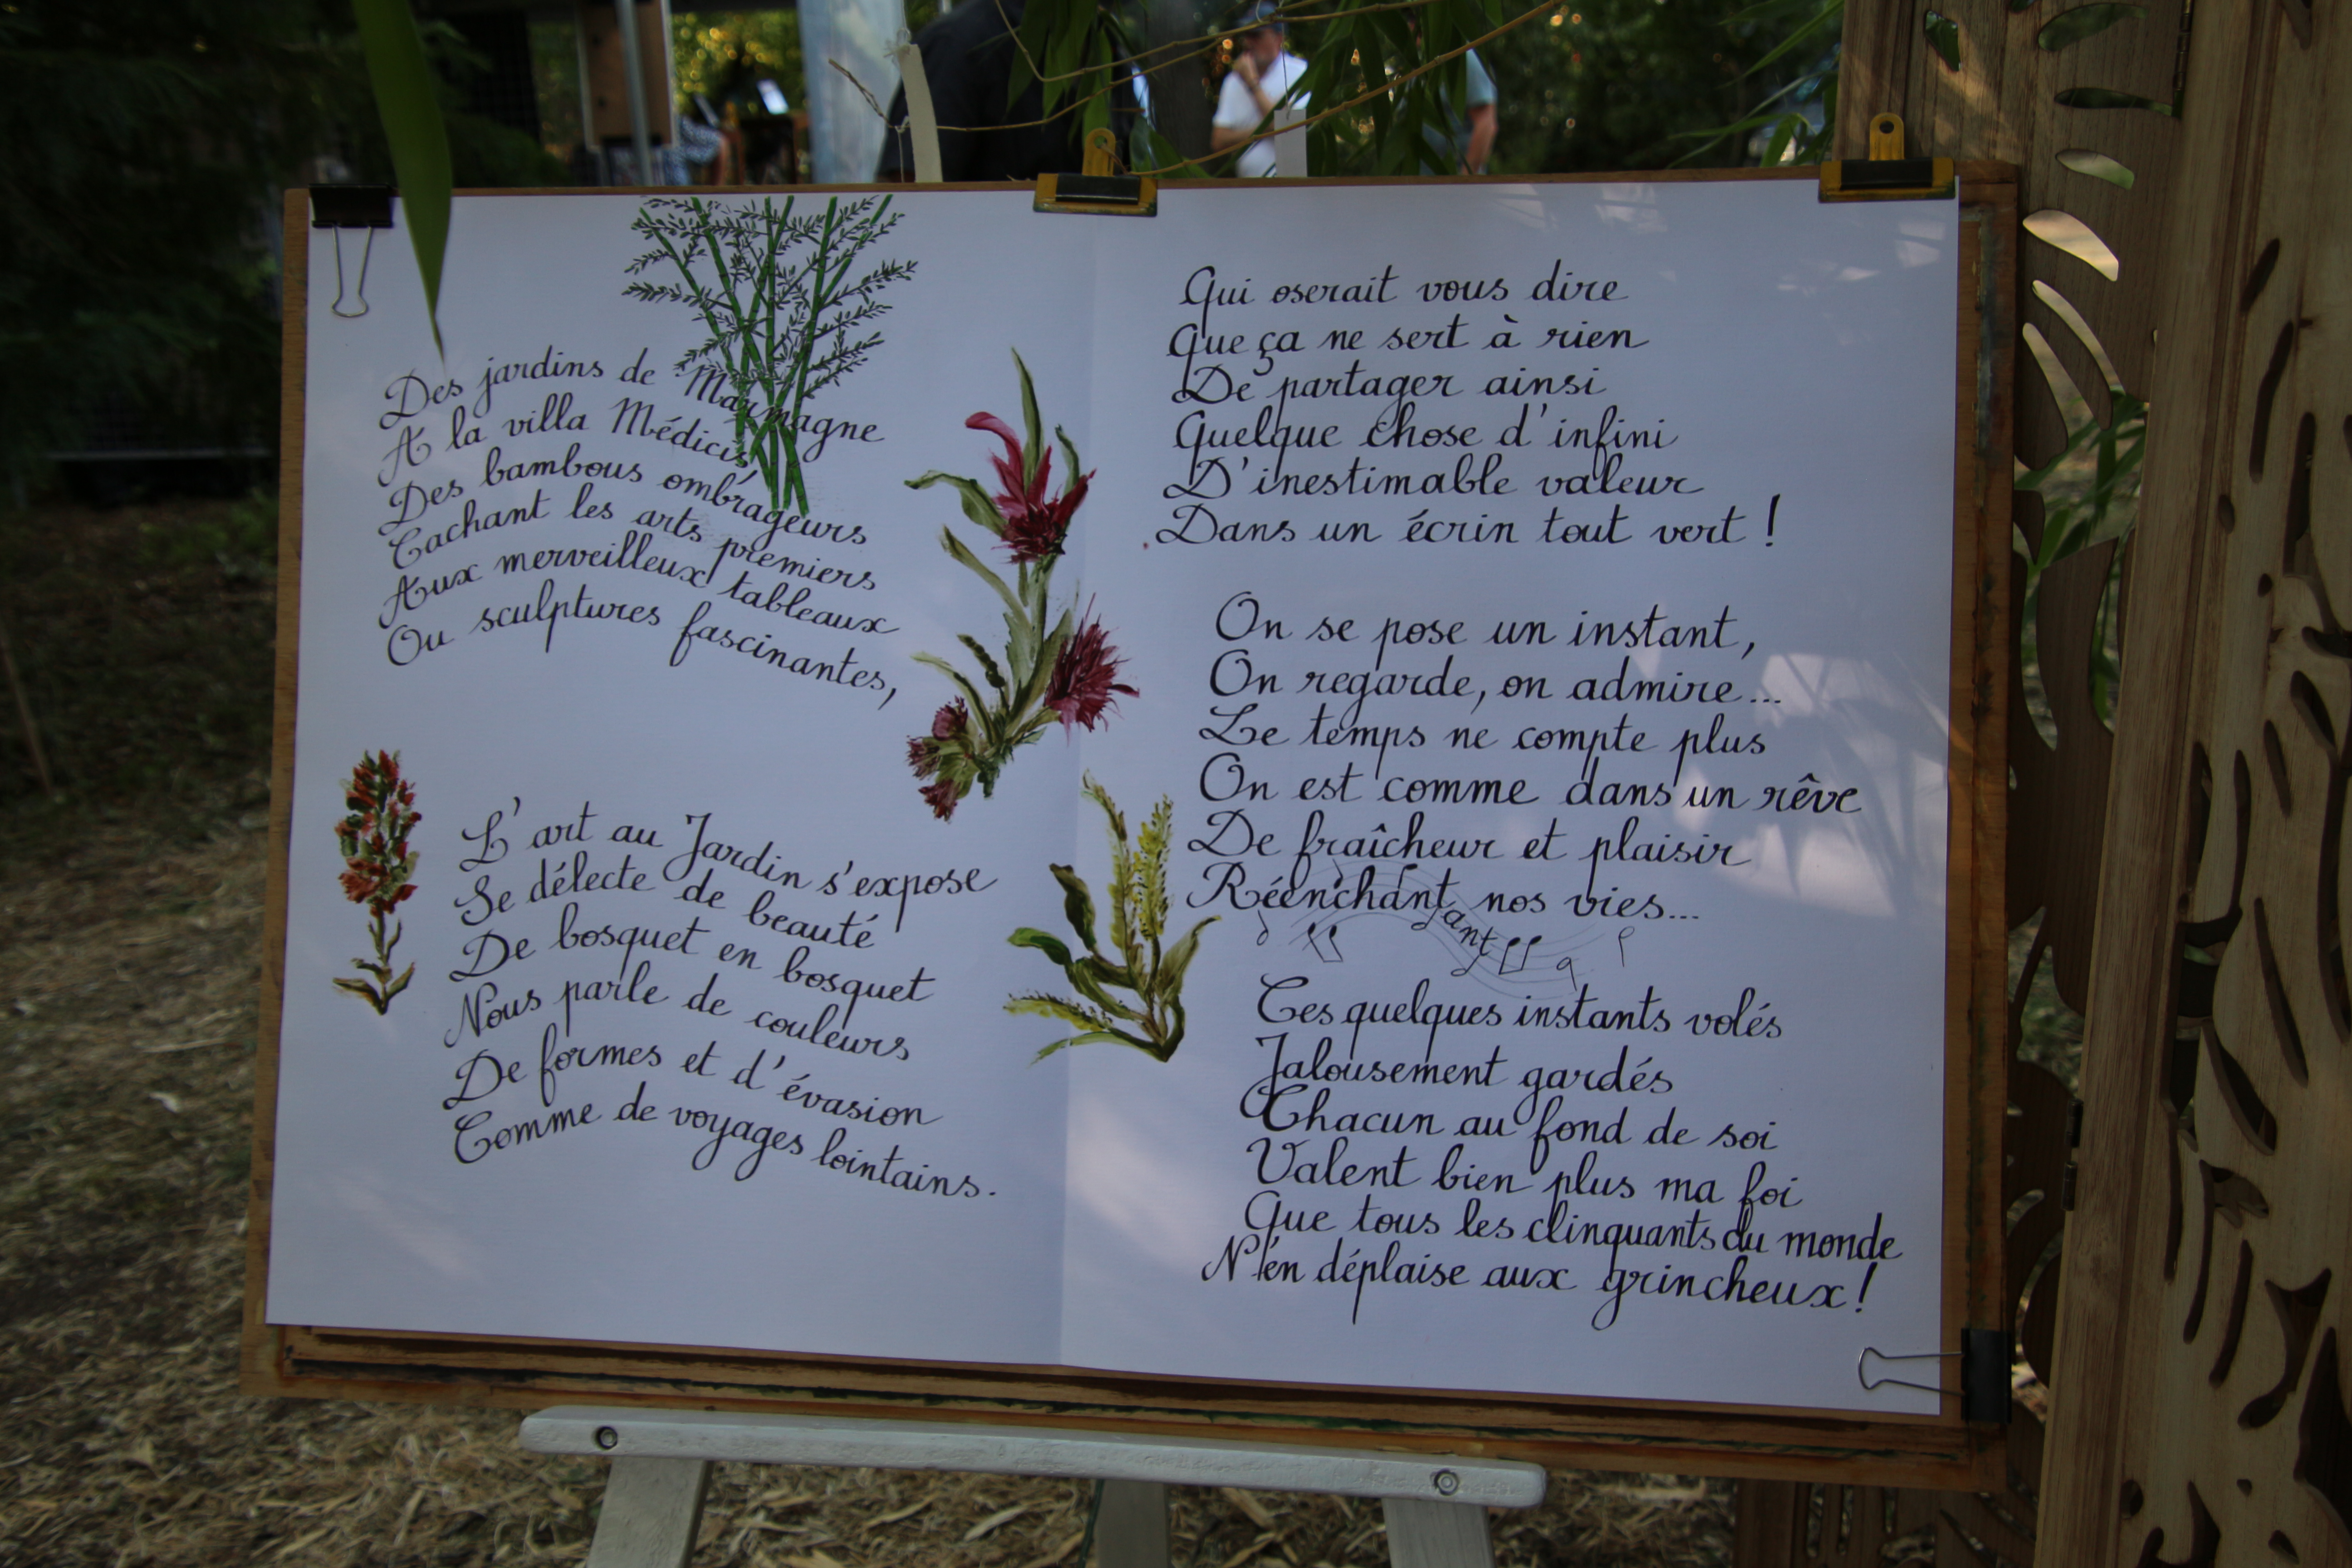 Des jardins de Maumagne
A la villa Médicis
Des bambous ombrageurs
Cachant les arts premiers
Aux merveilleux tableaux
Ou sculptures fascinantes,
L'art au Jardin s'expose
Se délecte de beauté
De bosquet en bosquet
Nous parle de couleurs
De formes et d'évasion
Comme de voyages lointains.
Qui oserait vous dire
Que ça ne sert à rien
De partager ainsi
Quelque chose d'infini
D'inestimable valeur
Dans un écrin tout vert !
On se pose un instant,
On regarde, on admire...
Le temps ne compte plus
On est comme dans un rêve
De fraîcheur et plaisir
Réenchantant nos vies...
Ces quelques instants volés
Jalousement gardés
Chacun au fond de soi
Valent bien plus ma foi
Que tous les clinquants du monde
N'en déplaise aux grincheux !